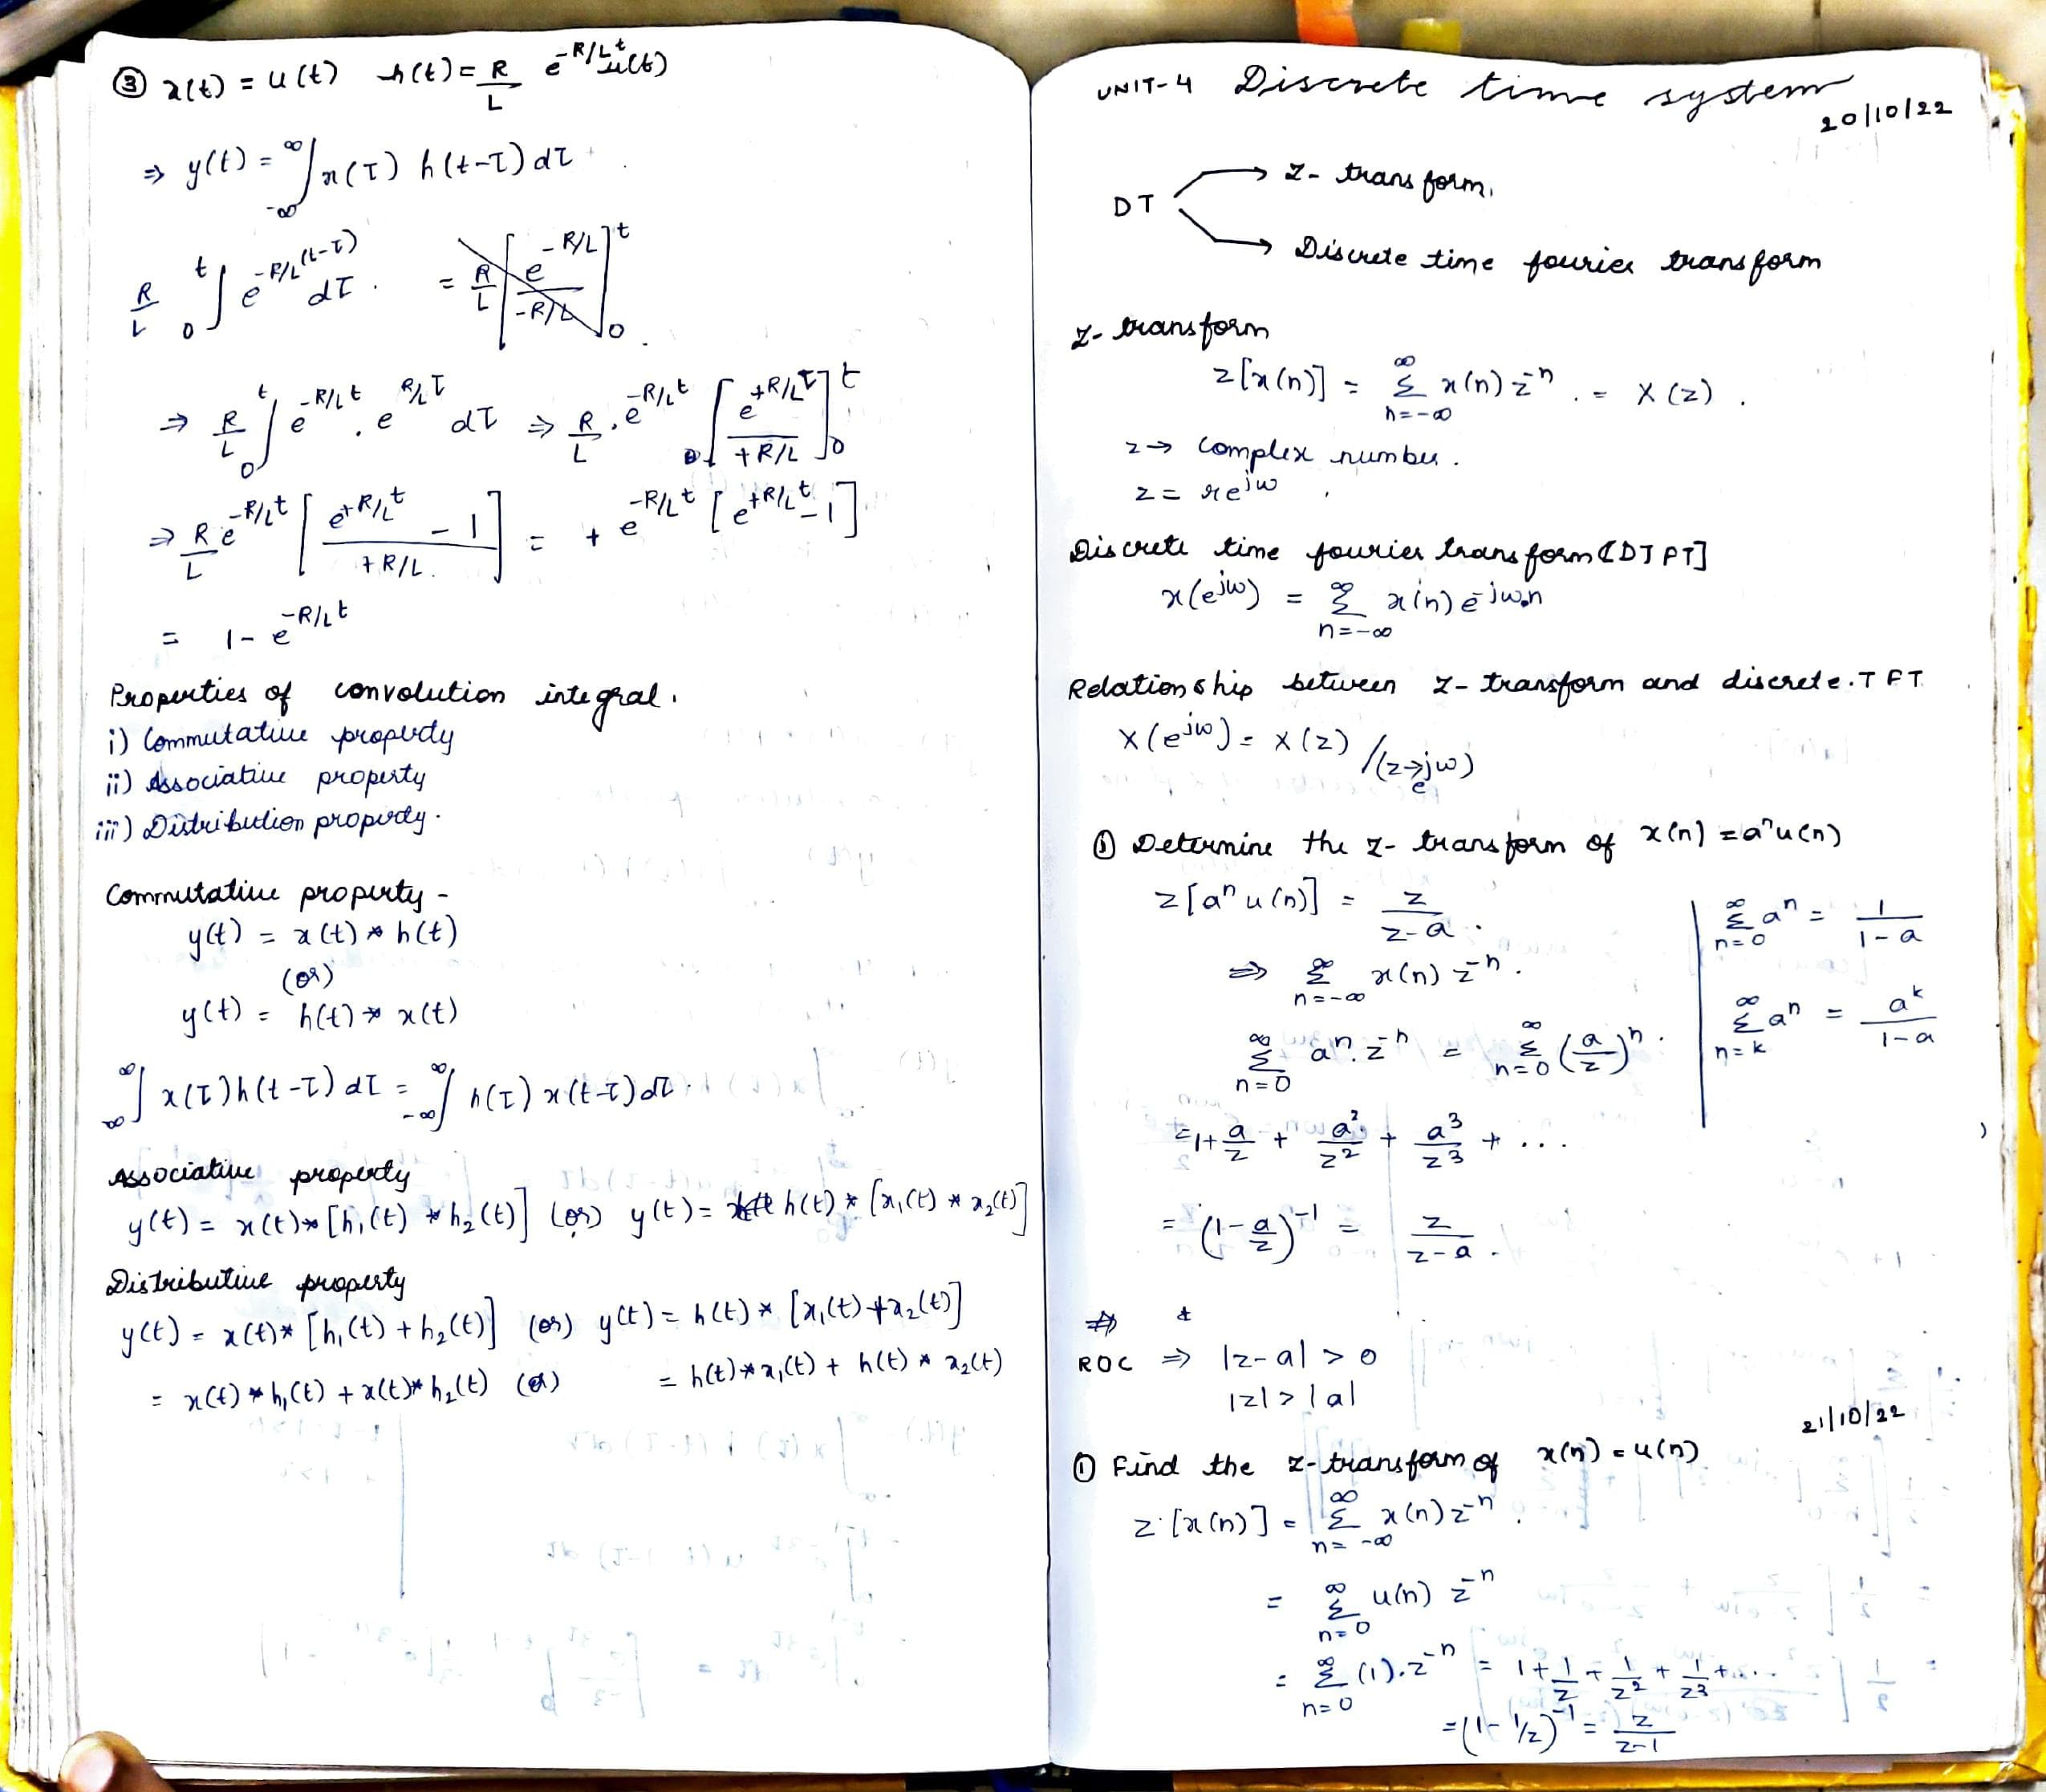 ③ x(t) = u(t) h(t) = R/L e^-R/Lt u(t)
⇒ y(t) = ∞∫-∞ x(τ) h(t-τ) dτ
R/L t∫0 e^-R/L(t-τ) dτ. = R/L [e^-R/L / -R/L]^t_0
⇒ R/L t∫0 e^-R/Lt . e^R/Lτ dτ ⇒ R/L . e^-R/Lt [e^+R/Lτ / +R/L]^t_0
⇒ R/L e^-R/Lt [e^+R/Lt - 1 / +R/L.] = + e^-R/Lt [e^+R/Lt - 1]
= 1 - e^-R/Lt
Properties of convolution integral.
i) Commutative property
ii) Associative property
iii) Distribution property.
Commutative property -
y(t) = x(t) * h(t)
(or)
y(t) = h(t) * x(t)
∞∫∞ x(τ) h(t-τ) dτ = ∞∫-∞ h(τ) x(t-τ) dτ.
Associative property
y(t) = x(t) * [h₁(t) * h₂(t)] (or) y(t) = h(t) * [x₁(t) * x₂(t)]
Distributive property
y(t) = x(t) * [h₁(t) + h₂(t)] (or) y(t) = h(t) * [x₁(t) + x₂(t)]
= x(t) * h₁(t) + x(t) * h₂(t) (or) = h(t) * x₁(t) + h(t) * x₂(t)
UNIT-4 Discrete time system
20/10/22
DT → Z- transform.
→ Discrete time fourier transform
Z- transform
z[x(n)] = ∞Σn=-∞ x(n) z^-n . = X(z) .
z → complex number.
z = re^jω
Discrete time fourier transform [DTFT]
x(e^jω) = ∞Σn=-∞ x(n) e^-jωn
Relationship between Z- transform and discrete.TFT
X(e^jω) = X(z) /(z→e^jω)
① Determine the Z- transform of x(n) = aⁿu(n)
z[aⁿ u(n)] = z/z-a .
∞Σn=0 aⁿ = 1/1-a
⇒ ∞Σn=-∞ x(n) z^-n .
∞Σn=k aⁿ = a^k/1-a
∞Σn=0 aⁿ. z^-n = ∞Σn=0 (a/z)ⁿ .
= 1 + a/z + a²/z² + a³/z³ + ...
= (1 - a/z)^-1 = z/z-a .
ROC ⇒ |z-a| > 0
|z| > |a|
21/10/22
① Find the z-transform of x(n) = u(n)
z[x(n)] = ∞Σn=-∞ x(n) z^-n .
= ∞Σn=0 u(n) z^-n
= ∞Σn=0 (1).z^-n = 1 + 1/z + 1/z² + 1/z³ + ...
= (1 - 1/z)^-1 = z/z-1